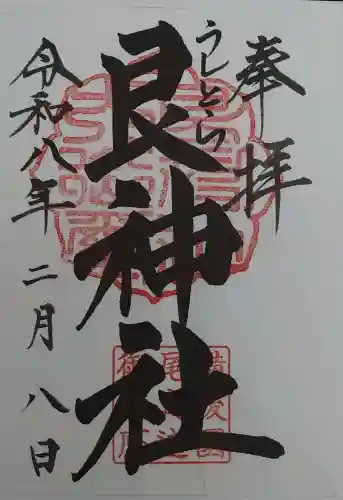 奉拝
うしとら
艮神社
令和八年二月八日